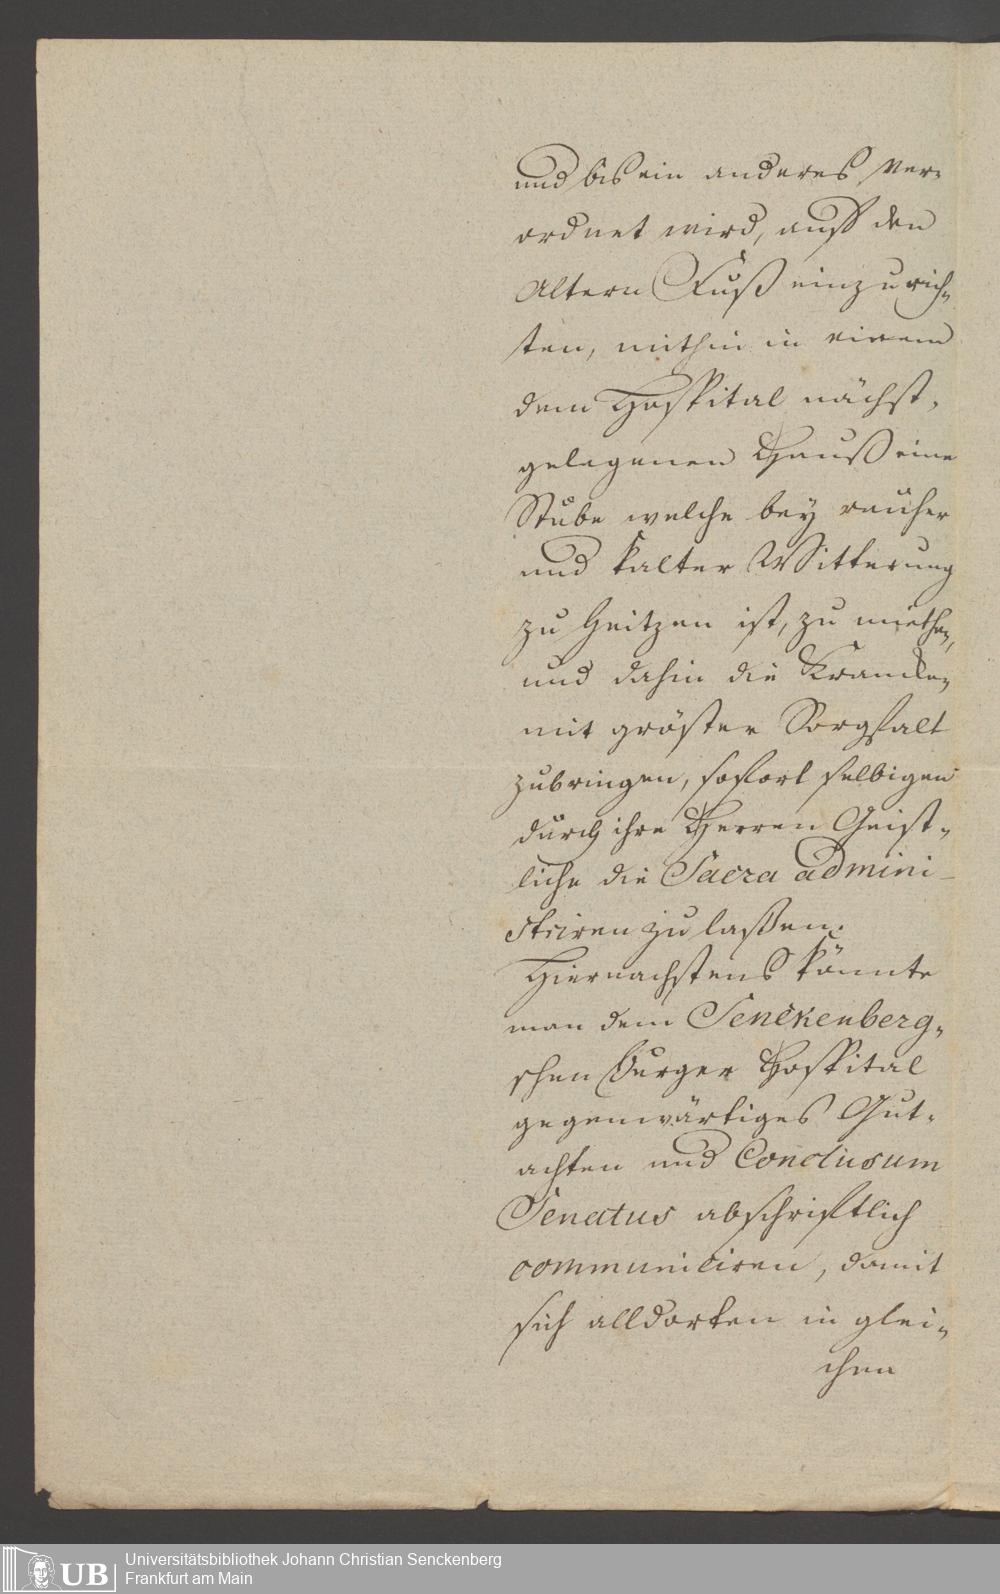 und bis ein anderes ver-
ordnet wird, auff den
Altern Fuß einzurich-
ten, mithin in einem
dem Hospital nächst-
gelegenen Hauß eine
Stube welche bey rauher
und kalter Witterung
zu heitzen ist, zu miethen,
und dahin die Krancken
mit gröster Sorgfalt
zubringen, sofort selbigen
durch ihre Herren Geist-
liche die Sacra admini-
striren zu laßen.
Hiernachstens könnte
man dem Senckenberg-
schen Burger Hospital
gegenwärtiges Gut-
achten und Conclusum
Senatus abschriftlich
communiciren, damit
sich alldorten in glei-
chen
Universitätsbibliothek Johann Christian Senckenberg
Frankfurt am Main
UB